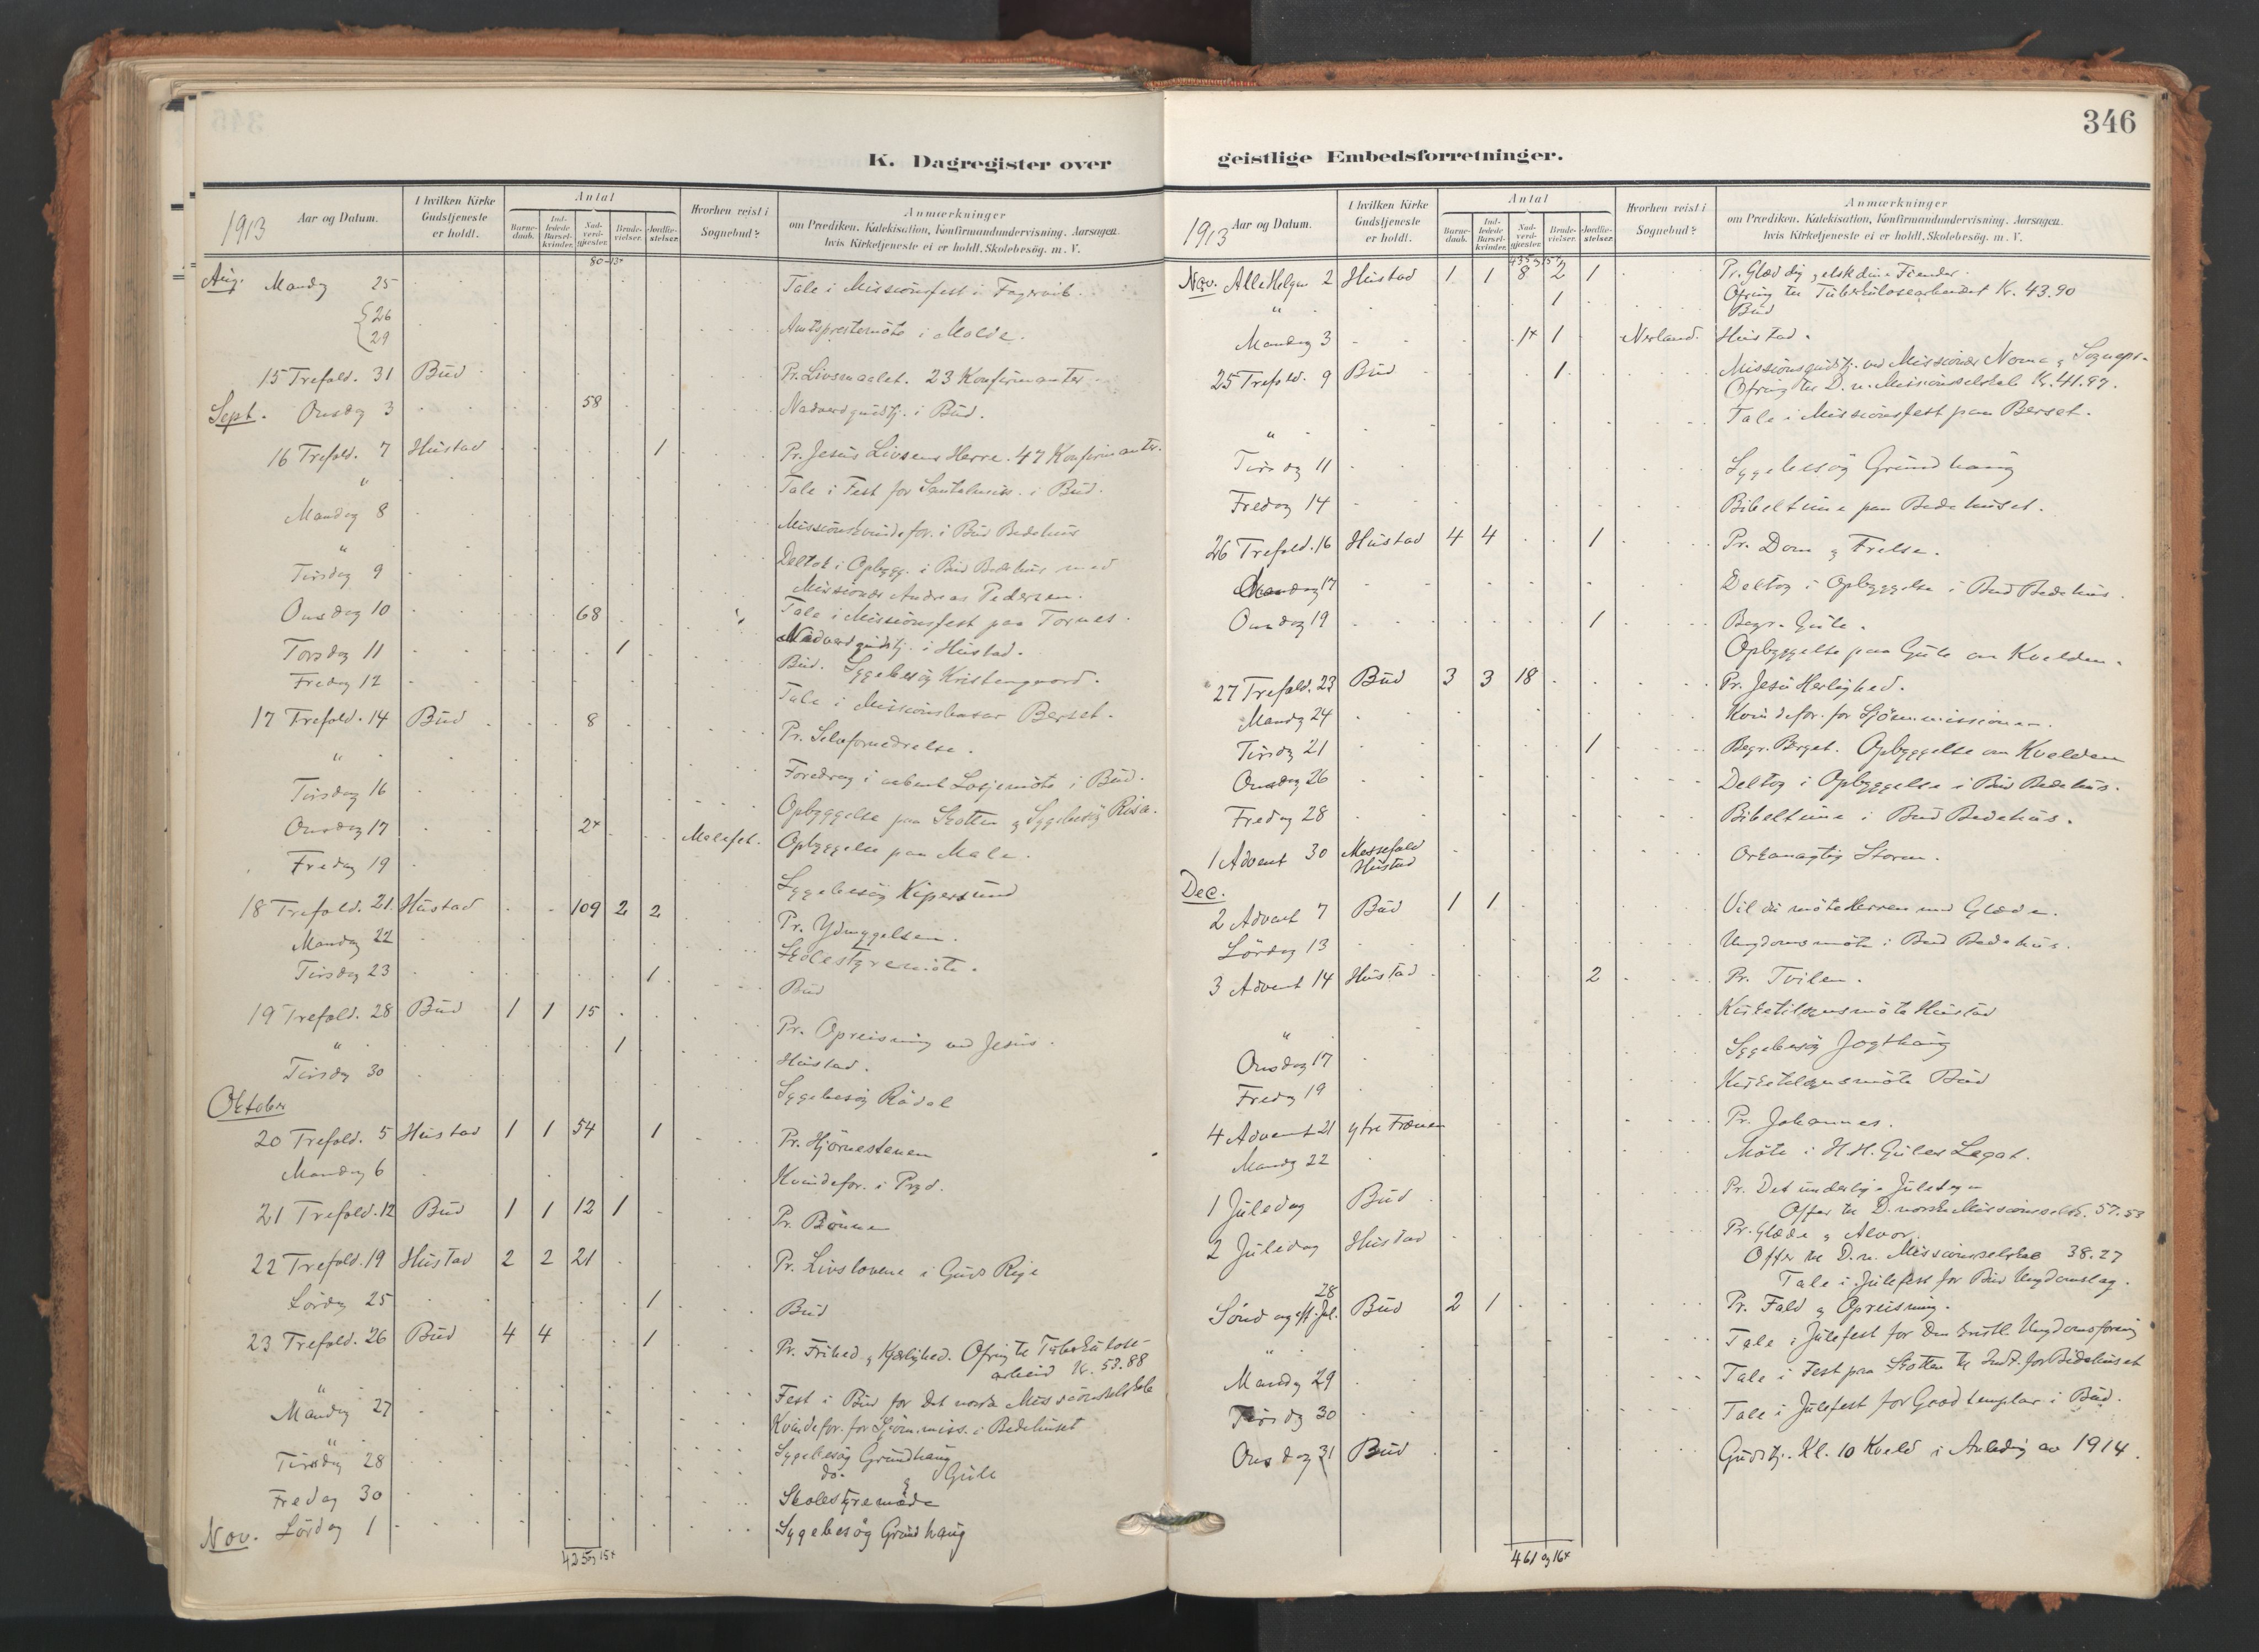 K. Dagregister over
1913 Aar og Datum. I hvilken Kirke Gudstjeneste er holdt. Antal Barnedaab. Indledede Barselkvinder. Nadverdgjester. Brudevielser. Jordfæstelser. Hvorhen reist i Sognebud? Anmærkninger om Prædiken, Katekisation, Konfirmandundervisning. Aarsagen hvis Kirketjeneste ei er holdt. Skolebesøg. m. V.
Aug. Mandag 25 Tale i Missionsfest i Fagervik.
26
29 Amtsprestemöte i Molde.
15 Trefold. 31 Bud Pr. Livsmaalet. 23 Konfirmanter
Sept. Onsdag 3 58 Nadverdgudstj. i Bud.
16 Trefold. 7 Hustad 1 Pr. Jesus Livsens Herre. 47 Konfirmanter.
" Tale i Fest for Santalmiss. i Bud.
Mandag 8 Missionskvindefor. i Bud Bedehus
" Deltok i Opbygg. i Bud Bedehus med
Tirsdag 9 Missionær Andreas Pedersen.
Onsdag 10 68 Tale i Missionsfest paa Tornes.
Nadverdgudstj. i Hustad.
Torsdag 11 1 Bud. Sygebesög Kristengaard.
Fredag 12 Tale i Missionsbasar Berset.
17 Trefold. 14 Bud 8 Pr. Selvfornedrelse.
" Foredrag i aabent Losjemöte i Bud.
Tirsdag 16 Opbyggelse paa Skotten og Sygebesög Risa.
Onsdag 17 2x Malefet. Opbyggelse paa Male.
Fredag 19 Sygebesög Kipersund
18 Trefold. 21. Hustad 109 2 2 Pr. Ydmygelsen.
Mandag 22 Skolestyremöte.
Tirsdag 23 1 Bud
19 Trefold. 28 Bud 1 1 15 Pr. Opreisning ved Jesus.
" 1 Hustad.
Tirsdag 30 Sygebesög Rödal
Oktober
20 Trefold. 5 Hustad 1 1 54 1 Pr. Hjörnestenen
Mandag 6 Kvindefor. i Prgd.
21 Trefold. 12 Bud 1 1 12 1 Pr. Bönnen
22 Trefold. 19 Hustad 2 2 21 Pr. Livslovene i Guds Rige
Lördag 25 1 Bud
23 Trefold. 26 Bud 4 4 1 Pr. Frihed og Kjærlighed. Ofring til Tuberkulose-
arbeid Kr. 53.88
" Fest i Bud for det norske Missionsselskab
Mandag 27 Kvindefor. for Sjöm.miss. i Bedehuset
" Sygebesög Grundhaug
Tirsdag 28 do. & Gule
Fredag 30 Skolestyremöde
Nov. Lördag 1 Sygebesög Grundhaug
425 og 15x
346
geistlige Embedsforretninger.
1913 Aar og Datum. I hvilken Kirke Gudstjeneste er holdt. Antal Barnedaab. Indledede Barselkvinder. Nadverdgjester. Brudevielser. Jordfæstelser. Hvorhen reist i Sognebud? Anmærkninger om Prædiken, Katekisation, Konfirmandundervisning. Aarsagen hvis Kirketjeneste ei er holdt. Skolebesøg. m. V.
Nov. Alle Helgen 2 Hustad 1 1 8 2 1 Pr. Glæd dig, elsk dine Fiender.
Ofring til Tuberkulosearbeidet Kr. 43.90
" 1 Bud
Mandag 3 1x 1 Nerland. Hustad.
25 Trefold. 9 Bud 1 Missionsgudstj. ved Missionær Nome og Sognepr.
Ofring til D. n. Missionsselskab Kr. 41.97.
" Tale i Missionsfest paa Berset.
Tirsdag 11 Sygebesög Grundhaug
Fredag 14 Bibeltime paa Bedehuset.
26 Trefold. 16 Hustad 4 4 1 Pr. Dom og Frelse.
Mandag 17 Deltog i Opbyggelse i Bud Bedehus.
Onsdag 19 1 Begr. Gule.
Opbyggelse paa Gule om Kvelden.
27 Trefold. 23 Bud 3 3 18 Pr. Jesu Herlighed.
Mandag 24 Kvindefor. for Sjömmissionen.
Tirsdag 21 1 Begr. Berget. Opbyggelse om Kvelden
Onsdag 26 Deltog i Opbyggelse i Bud Bedehus.
Fredag 28 Bibeltime i Bud Bedehus.
1 Advent 30 Messefald Hustad Orkanagtig Storm.
Dec.
2 Advent 7 Bud 1 1 Vil du möte Herren med Glæde.
Lördag 13 Ungdomsmöte i Bud Bedehus.
3 Advent 14 Hustad 2 Pr. Tvilen.
" Kirketilsynsmöte Hustad
Onsdag 17 Sygebesög Jogthaug
Fredag 19 Kirketilsynsmöte Bud
4 Advent 21 ytre Frænen Pr. Johannes.
Mandag 22 Möte i H. H. Gules Legat.
1 Juledag Bud Pr. Det underlige Juledagn
Offer til D. norske Missionsselsk. 57.53
2 Juledag Hustad Pr. Glæde og Alvor.
Offer til D. n. Missionsselskab 38.27
Tale i Julefest for Bud Ungdomslag.
28
Söndag eft. Jul. Bud 2 1 Pr. Fald og Opreisning.
" Tale i Julefest for Den kristl. Ungdomsforening
Mandag 29 Tale i Fest paa Skotten til Indt. for Bedehuset
Tirsdag 30 Tale i Julefest for Goodtemplar i Bud.
Onsdag 31 Bud Gudstj. Kl. 10 Kveld i Anledning av 1914.
461 og 16x